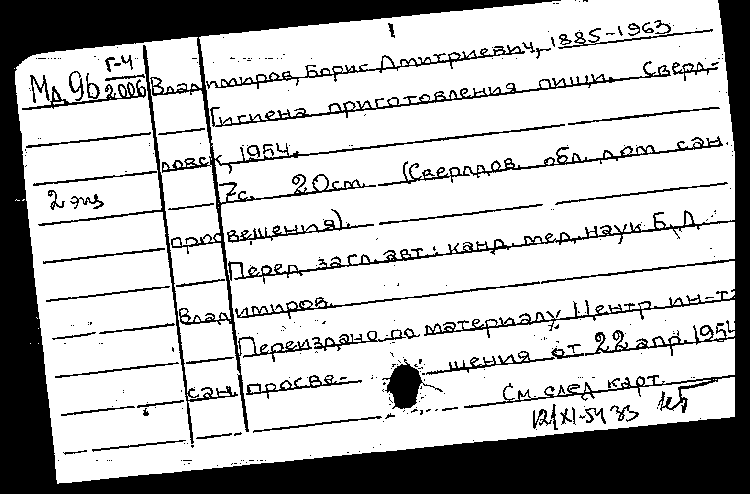 1
Г-4
Мд 96 2006 Владимиров, Борис Дмитриевич, 1885-1963
Гигиена приготовления пищи. Сверд-
ловск, 1954.
2 экз 7с. 20см (Свердлов. обл. дом сан.
просвещения).
Перед загл. авт.: канд. мед. наук Б.Д.
Владимиров.
Переиздано по материалу Центр ин-та
сан. просвещения от 22 апр. 1954
См. след. карт.
12/XI-54